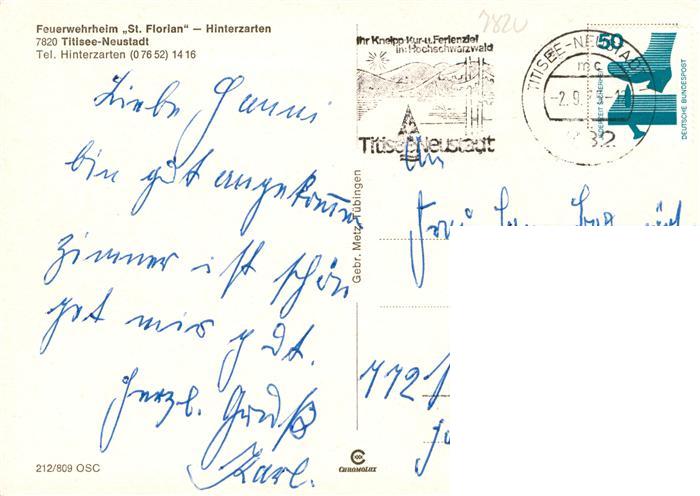 Feuerwehrheim „St. Florian“ — Hinterzarten
7820 Titisee-Neustadt
Tel. Hinterzarten (0 76 52) 14 16
Liebe Hanni
bin gut angekommen
Zimmer ist schön
get mir gut.
Herzl. Gruß
Karl.
212/809 OSC
Gebr. Metz, Tübingen
CHROMOLUX
7820
Ihr Kneipp-Kur-u. Ferienziel
im Hochschwarzwald
Titisee-Neustadt
TITISEE-NEUSTADT 1
mc
-2.9.
50
JEDERZEIT SICHERHEIT
DEUTSCHE BUNDESPOST
An
Frau
772